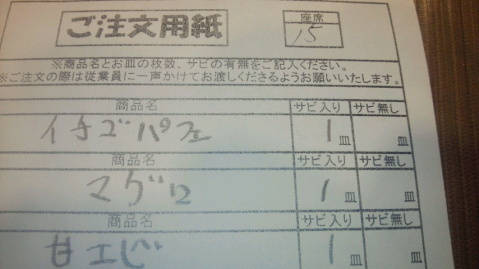 ご注文用紙 座席 15
※商品名とお皿の枚数、サビの有無をご記入ください。
※ご注文の際は従業員に一声かけてお渡しくださるようお願いいたします。
商品名 サビ入り サビ無し
イチゴパフェ 1皿 皿
商品名 サビ入り サビ無し
マグロ 1皿 皿
商品名 サビ入り サビ無し
甘エビ 1皿 皿